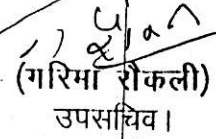 (गरिमा रौंकली)
उपसचिव।